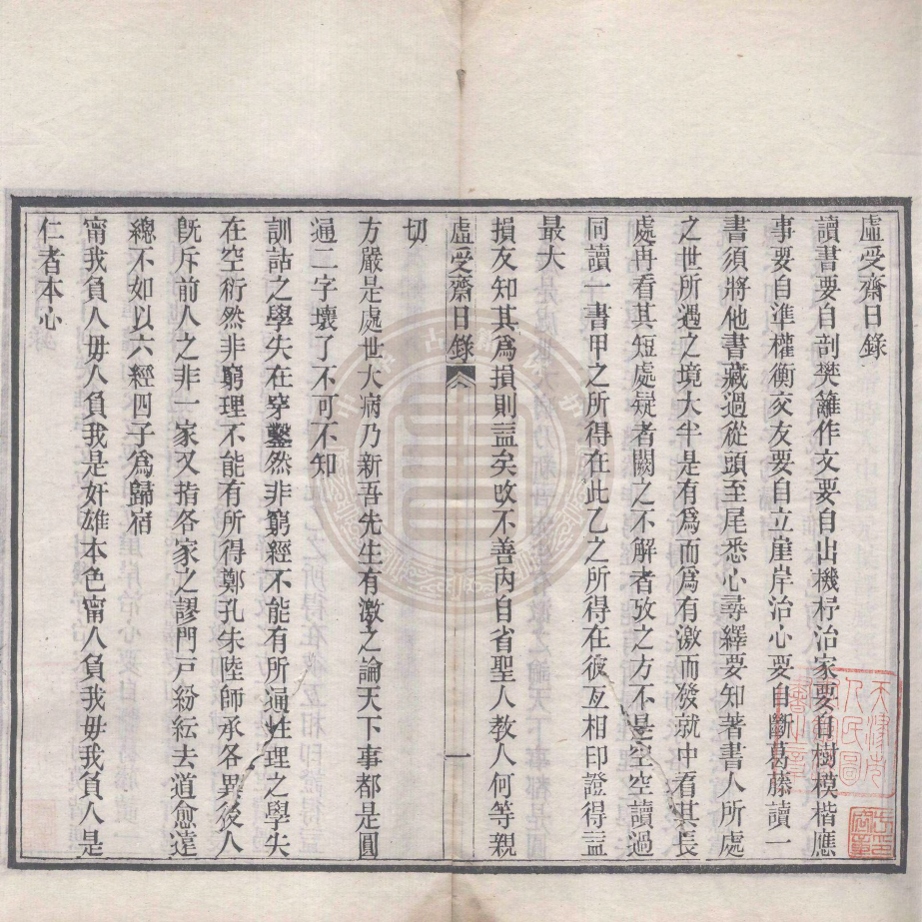 虛受齋日錄
讀書要自剖樊籬作文要自出機杼治家要自樹模楷應
事要自準權衡交友要自立崖岸治心要自斷葛藤讀一
書須將他書藏過從頭至尾悉心尋繹要知著書人所處
之世所遇之境大半是有爲而爲有激而發就中看其長
處再看其短處疑者闕之不解者攷之方不是空空讀過
同讀一書甲之所得在此乙之所得在彼互相印證得益
最大
損友知其爲損則益矣故不善內自省聖人教人何等親
虛受齋日錄 一
切
方嚴是處世大病乃新吾先生有激之論天下事都是圓
通二字壞了不可不知
訓詁之學失在穿鑿然非窮經不能有所通性理之學失
在空衍然非窮理不能有所得鄭孔朱陸師承各異後人
旣斥前人之非一家又指各家之謬門戸紛紜去道愈遠
總不如以六經四子爲歸宿
甯我負人毋人負我是奸雄本色甯人負我毋我負人是
仁者本心
天津市
人民圖
書館
藏書之章